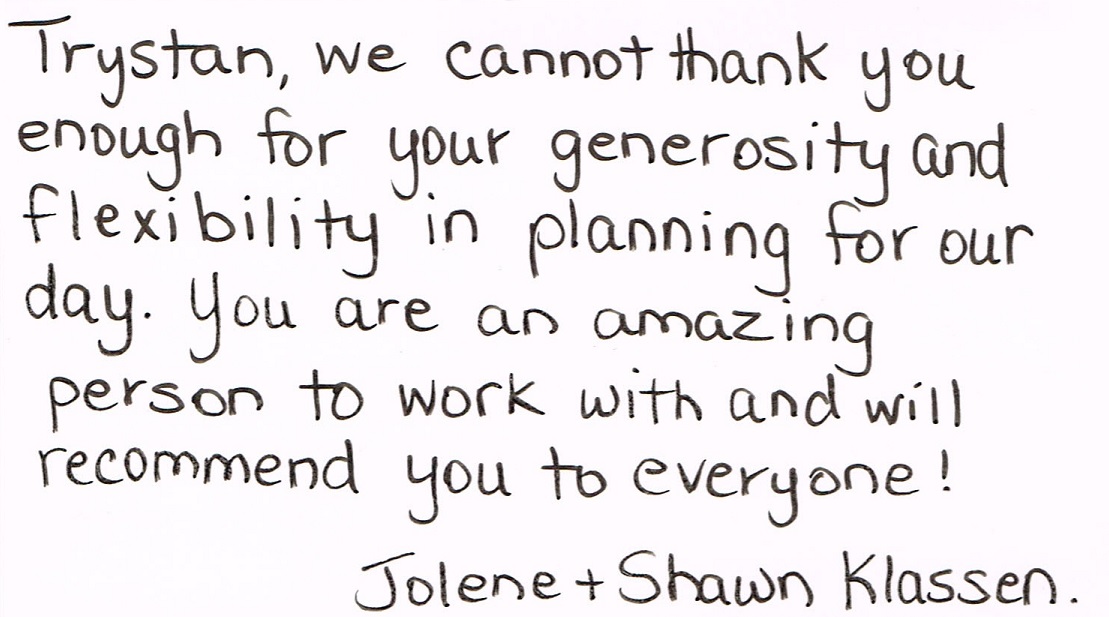 Trystan, we cannot thank you
enough for your generosity and
flexibility in planning for our
day. You are an amazing
person to work with and will
recommend you to everyone!
Jolene + Shawn Klassen.